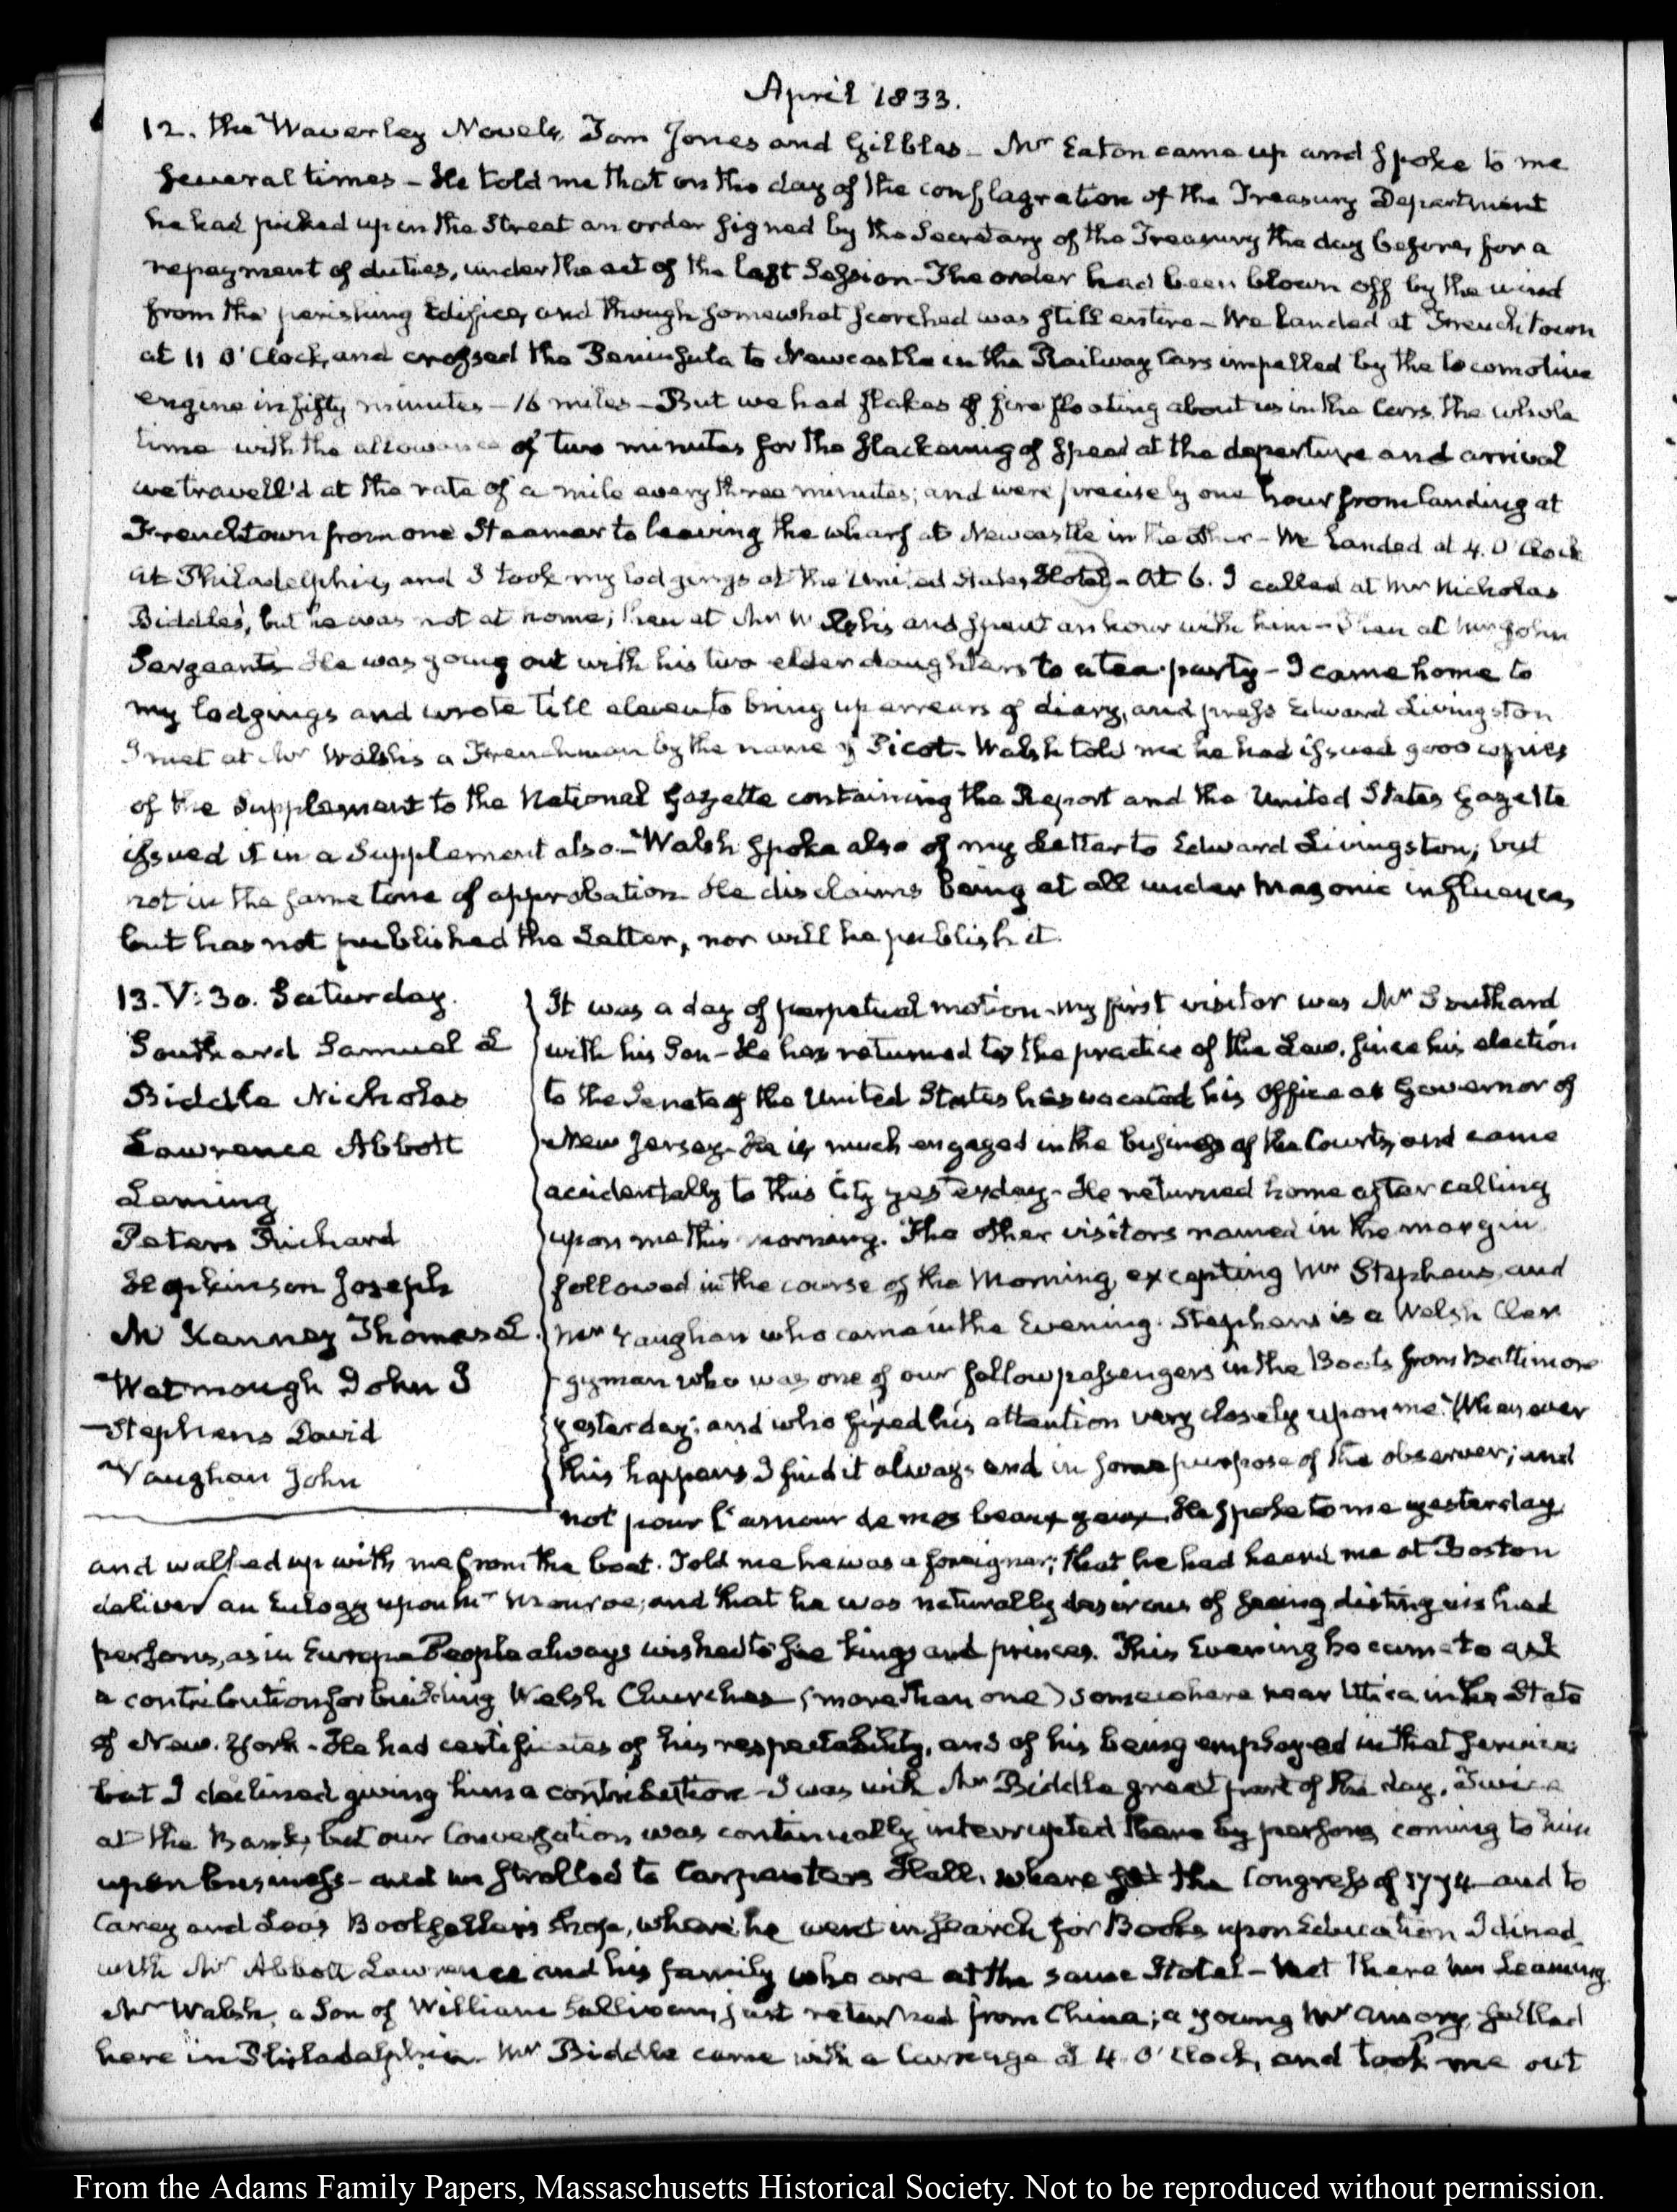 April 1833.
12. the Waverley Novels, Tom Jones and Gilblas – Mr Eaton came up and spoke to me
several times – He told me that on the day of the conflagration of the Treasury Department
he had picked up in the Street an order signed by the Secretary of the Treasury the day before, for a
repayment of duties, under the act of the last Session – The order had been blown off by the wind
from the perishing Edifice, and though somewhat scorched was still entire – We landed at Frenchtown
at 11 O'Clock, and crossed the Peninsula to Newcastle in the Railway Cars impelled by the locomotive
engine in fifty minutes – 16 miles – But we had flakes of fire floating about us in the Cars the whole
time with the allowance of two minutes for the slackening of speed at the departure and arrival
we travell'd at the rate of a mile every three minutes; and were precisely one hour from landing at
Frenchtown from one Steamer to leaving the wharf at Newcastle in the other – We landed at 4. O'Clock
at Philadelphia, and I took my lodgings at the United States Hotel – At 6. I called at Mr Nicholas
Biddle's, but he was not at home; then at Mr Walsh's and spent an hour with him – Then at Mr John
Sergeant's He was going out with his two elder daughters to a tea-party – I came home to
my lodgings and wrote till eleven to bring up arrears of diary, and press Edward Livingston
I met at Mr Walsh's a Frenchman by the name of Picot – Walsh told me he had issued 9000 copies
of the Supplement to the National Gazette containing the Report and the United States Gazette
issued it in a Supplement also – Walsh spoke also of my Letter to Edward Livingston; but
not in the same tone of approbation He disclaims being at all under Masonic influences,
but has not published the Letter, nor will he publish it.
13. V:30. Saturday.
Southard Samuel L
Biddle Nicholas
Lawrence Abbott
Leming
Peters Richard
Hopkinson Joseph
Mc Kenney Thomas L.
Watmough John G
Stephens David
Vaughan John
It was a day of perpetual motion – my first visitor was Mr Southard
with his Son – He has returned to the practice of the Law, since his election
to the Senate of the United States has vacated his Office as Governor of
New Jersey – He is much engaged in the business of the Courts, and came
accidentally to this City yesterday – He returned home after calling
upon me this morning. The other visitors named in the margin
followed in the course of the Morning, excepting Mr Stephens, and
Mr Vaughan who came in the Evening. Stephens is a Welsh Cler
gyman who was one of our fellow passengers in the Boats from Baltimore
yesterday; and who fixed his attention very closely upon me. Whenever
this happens I find it always end in some purpose of the observer; and
not pour l'amour de mes beaux yeux. He spoke to me yesterday
and walked up with me from the boat. Told me he was a foreigner; that he had heard me at Boston
deliver an Eulogy upon Mr Monroe, and that he was naturally desirous of seeing distinguished
persons, as in Europe People always wished to see kings and princes. This Evening he came to ask
a contribution for building Welsh Churches (more than one) somewhere near Utica in the State
of New-York – He had certificates of his respectability, and of his being employed in that service:
but I declined giving him a contribution – I was with Mr Biddle great part of the day. Twice
at the Bank, but our Conversation was continually interrupted there by persons coming to him
upon business – and we strolled to Carpenters Hall, where sat the Congress of 1774 – and to
Carey and Lea's Bookseller's shop, where he went in search for Books upon Education I dined
with Mr Abbott Lawrence and his family who are at the same Hotel – Met there Mr Leaming
Mr Walsh, a Son of William Sullivan, just returned from China; a young Mr Amory, settled
here in Philadelphia. Mr Biddle came with a Carriage at 4 O'Clock, and took me out
From the Adams Family Papers, Massachusetts Historical Society. Not to be reproduced without permission.